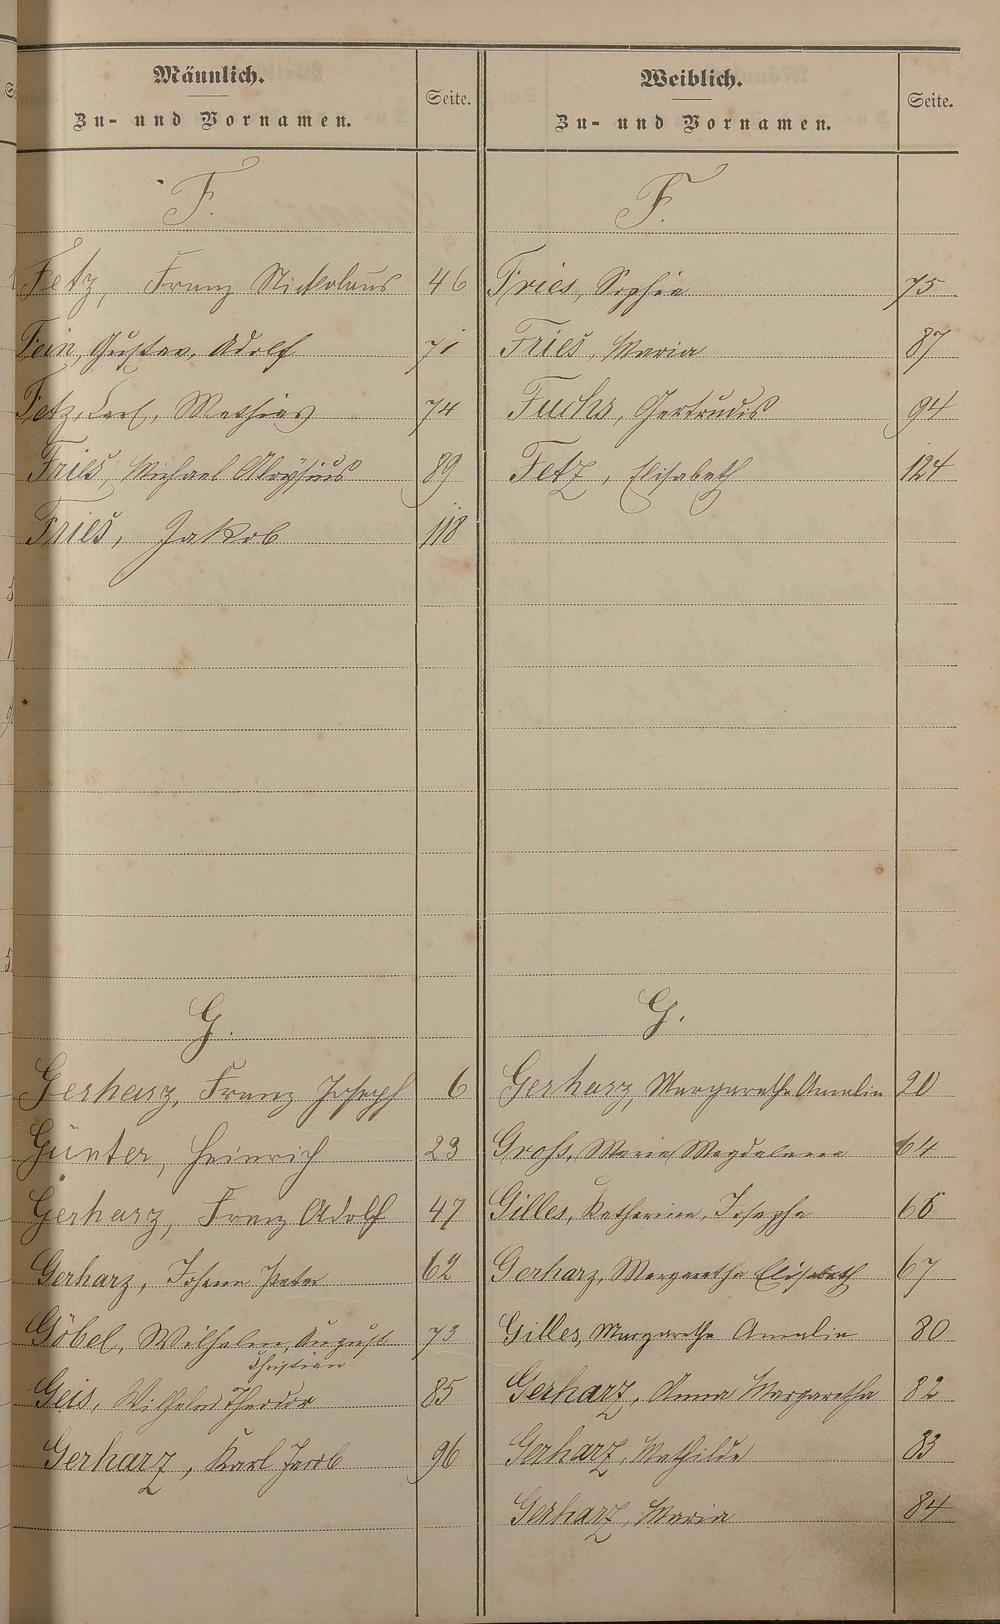 Männlich.
Zu- und Vornamen.
Seite.
F.
Fetz, Franz Nickolaus 46
Fein, Gustav, Adolf 71
Fetz, Carl, Mathias 74
Fries, Michael Aloysius 89
Fries, Jakob 118
G.
Gerharz, Franz Joseph 6
Günter, Heinrich 23
Gerharz, Franz Adolf 47
Gerharz, Johann Peter 62
Göbel, Wilhelm, August 73
Christian
Geis, Wilhelm Theodor 85
Gerharz, Karl Jacob 96
Weiblich.
Zu- und Vornamen.
Seite.
F.
Fries, Sophie 75
Fries, Maria 87
Fuchs, Gertrudis 94
Fetz, Elisabeth 124
G.
Gerharz, Margaretha Amalia 20
Groß, Maria Magdalena 64
Gilles, Katharina, Josepha 66
Gerharz, Margaretha Elisabeth 67
Gilles, Margaretha Amalia 80
Gerharz, Anna Margaretha 82
Gerharz, Mathilde 83
Gerharz, Maria 84